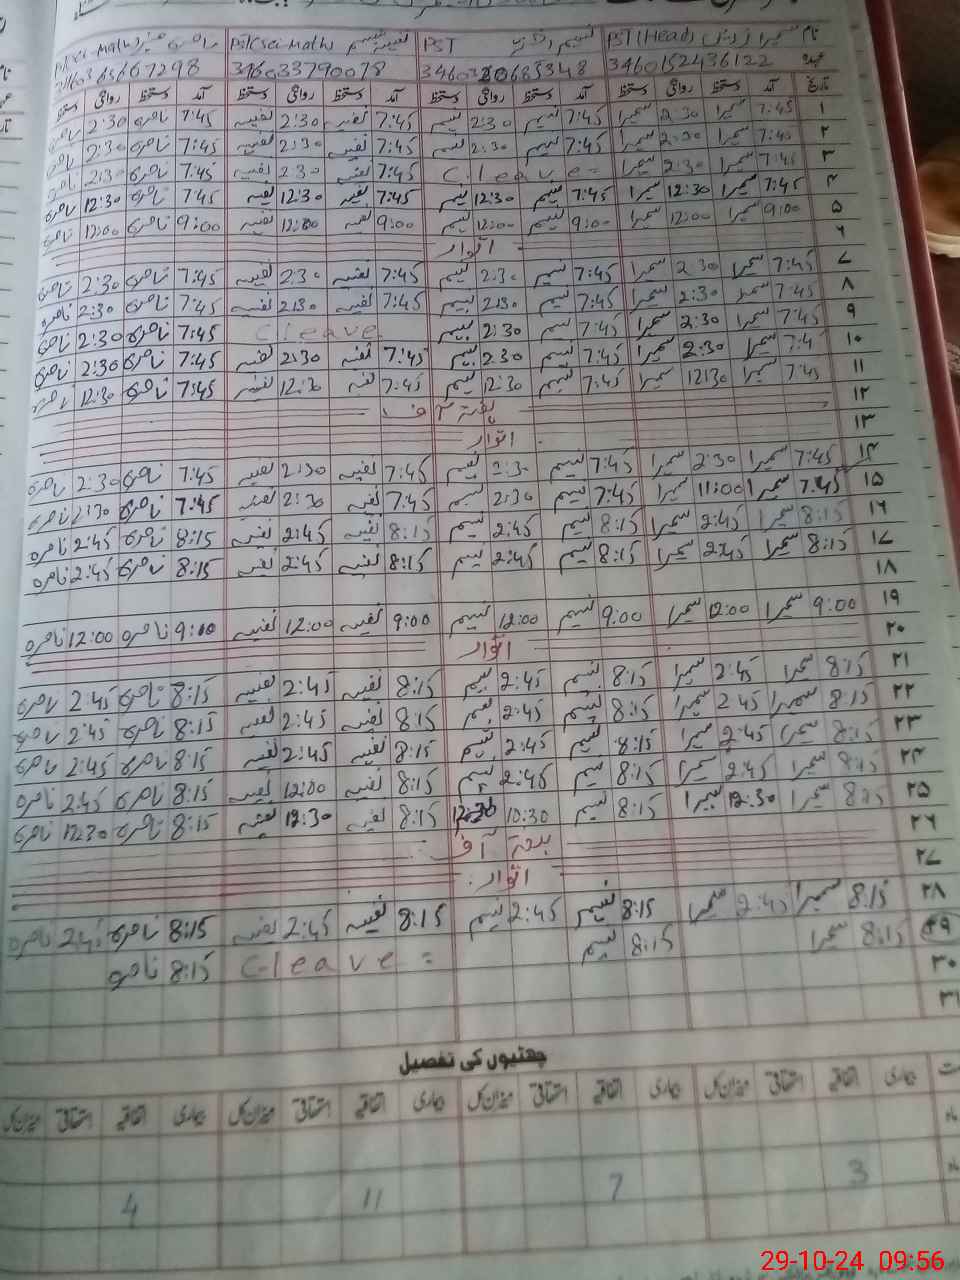 نام سمیرا PST (Head) نسیم PST نفیسہ PST(Sci-Math) ناصرہ PST(Sci-Math)
3460152436122 3160337900078
تاریخ آمد دستخط روانگی دستخط آمد دستخط روانگی دستخط آمد دستخط روانگی دستخط آمد دستخط روانگی دستخط
۱ 7:45 سمیرا 2:30 سمیرا 7:45 نسیم 2:30 نسیم 7:45 نفیسہ 2:30 نفیسہ 7:45 ناصرہ 2:30 ناصرہ
۲ 7:45 سمیرا 2:30 سمیرا 7:45 نسیم 2:30 نسیم 7:45 نفیسہ 2:30 نفیسہ 7:45 ناصرہ 2:30 ناصرہ
۳ 7:45 سمیرا 2:30 سمیرا C-leave = 7:45 نفیسہ 2:30 نفیسہ 7:45 ناصرہ 2:30 ناصرہ
۴ 7:45 سمیرا 12:30 سمیرا 7:45 نسیم 12:30 نسیم 7:45 نفیسہ 12:30 نفیسہ 7:45 ناصرہ 12:30 ناصرہ
۵ 9:00 سمیرا 12:00 سمیرا 9:00 نسیم 12:00 نسیم 9:00 نفیسہ 12:00 نفیسہ 9:00 ناصرہ 12:00 ناصرہ
۶ اتوار
۷ 7:45 سمیرا 2:30 سمیرا 7:45 نسیم 2:30 نسیم 7:45 نفیسہ 2:30 نفیسہ 7:45 ناصرہ 2:30 ناصرہ
۸ 7:45 سمیرا 2:30 سمیرا 7:45 نسیم 2:30 نسیم 7:45 نفیسہ 2:30 نفیسہ 7:45 ناصرہ 2:30 ناصرہ
۹ 7:45 سمیرا 2:30 سمیرا 7:45 نسیم 2:30 نسیم C leave 7:45 ناصرہ 2:30 ناصرہ
۱۰ 7:4 سمیرا 2:30 سمیرا 7:45 نسیم 2:30 نسیم 7:45 نفیسہ 2:30 نفیسہ 7:45 ناصرہ 2:30 ناصرہ
۱۱ 7:45 سمیرا 12:30 سمیرا 7:45 نسیم 12:30 نسیم 7:45 نفیسہ 12:30 نفیسہ 7:45 ناصرہ 12:30 ناصرہ
۱۲ ہفتہ آف
۱۳ اتوار
۱۴ 7:45 سمیرا 2:30 سمیرا 7:45 نسیم 2:30 نسیم 7:45 نفیسہ 2:30 نفیسہ 7:45 ناصرہ 2:30 ناصرہ
۱۵ 7:45 سمیرا 11:00 سمیرا 7:45 نسیم 2:30 نسیم 7:45 نفیسہ 2:30 نفیسہ 7:45 ناصرہ 2:30 ناصرہ
۱۶ 8:15 سمیرا 2:45 سمیرا 8:15 نسیم 2:45 نسیم 8:15 نفیسہ 2:45 نفیسہ 8:15 ناصرہ 2:45 ناصرہ
۱۷ 8:15 سمیرا 2:45 سمیرا 8:15 نسیم 2:45 نسیم 8:15 نفیسہ 2:45 نفیسہ 8:15 ناصرہ 2:45 ناصرہ
۱۸
۱۹ 9:00 سمیرا 12:00 سمیرا 9:00 نسیم 12:00 نسیم 9:00 نفیسہ 12:00 نفیسہ 9:00 ناصرہ 12:00 ناصرہ
۲۰ اتوار
۲۱ 8:15 سمیرا 2:45 سمیرا 8:15 نسیم 2:45 نسیم 8:15 نفیسہ 2:45 نفیسہ 8:15 ناصرہ 2:45 ناصرہ
۲۲ 8:15 سمیرا 2:45 سمیرا 8:15 نسیم 2:45 نسیم 8:15 نفیسہ 2:45 نفیسہ 8:15 ناصرہ 2:45 ناصرہ
۲۳ 8:15 سمیرا 2:45 سمیرا 8:15 نسیم 2:45 نسیم 8:15 نفیسہ 2:45 نفیسہ 8:15 ناصرہ 2:45 ناصرہ
۲۴ 8:15 سمیرا 2:45 سمیرا 8:15 نسیم 2:45 نسیم 8:15 نفیسہ 12:00 نفیسہ 8:15 ناصرہ 2:45 ناصرہ
۲۵ 8:15 سمیرا 12:30 سمیرا 8:15 نسیم 10:30 8:15 نفیسہ 12:30 نفیسہ 8:15 ناصرہ 12:30 ناصرہ
۲۶ ہفتہ آف
۲۷ اتوار
۲۸ 8:15 سمیرا 2:45 سمیرا 8:15 نسیم 2:45 نسیم 8:15 نفیسہ 2:45 نفیسہ 8:15 ناصرہ 2:45 ناصرہ
۲۹ 8:15 سمیرا 8:15 نسیم C-leave = 8:15 ناصرہ
۳۰
۳۱
چھٹیوں کی تفصیل
بیماری اتفاقیہ استحقاقی میزان کل بیماری اتفاقیہ استحقاقی میزان کل بیماری اتفاقیہ استحقاقی میزان کل بیماری اتفاقیہ استحقاقی میزان کل
3 7 11 4
29-10-24 09:56